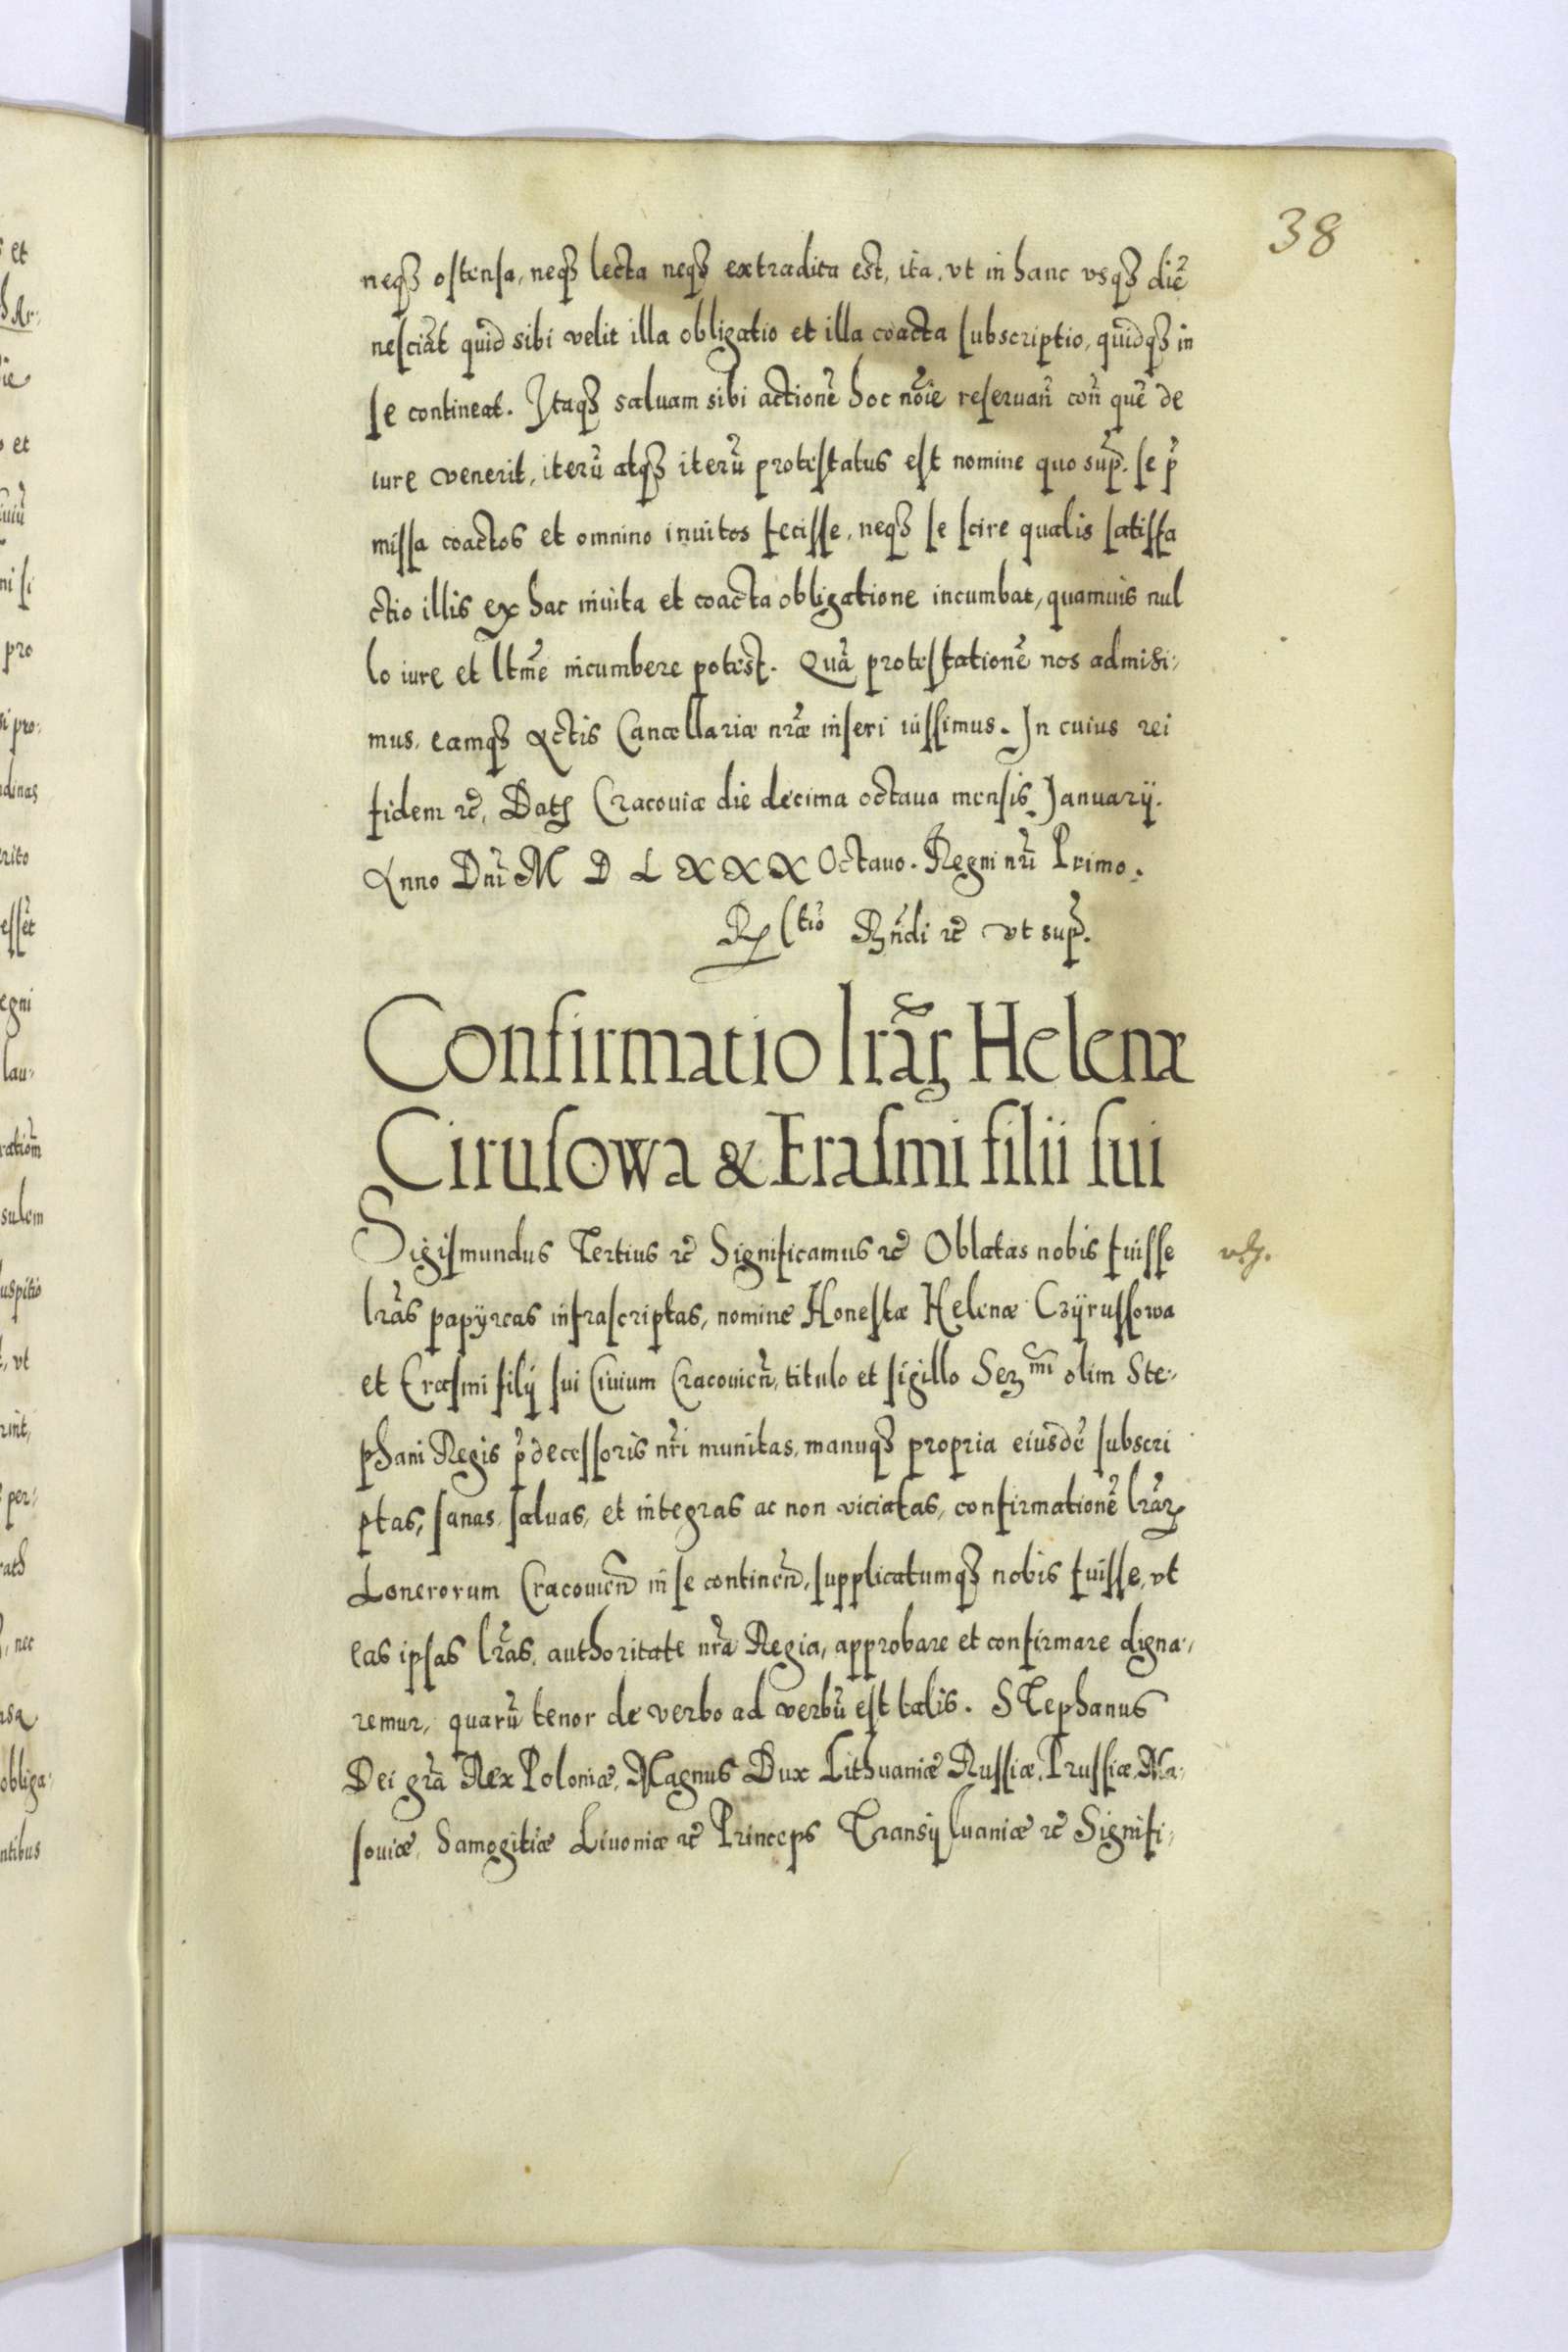 38
neqʒ ostensa, neqʒ lecta neqʒ extradita est, ita, vt in hanc vsqʒ diē
nesciāt quid sibi velit illa obligatio et illa coacta subscriptio, quidqʒ in
se contineat. Itaqʒ saluam sibi actionē hoc nōie reseruan̄ con̄ quē de
iure venerit, iterū atqʒ iterū protestatus est nomine quo sup̄. se p̄
missa coactos et omnino inuitos fecisse, neqʒ se scire qualis satisfa
ctio illis ex hac inuita et coacta obligatione incumbat, quamuis nul
lo iure et ltme̅ incumbere potest. Quā protestationē nos admisi,
mus, eamqʒ Actis Cancellariæ nr̄æ inseri iussimus. In cuius rei
fidem ꝛc̄, Datʒ Cracouiæ die decima octaua mensis Januarÿ.
Anno Dn̄i M D L XXX Octauo. Regni nr̄i Primo.
Rn̄di ꝛc̄ vt sup̄.
Confirmatio lr̄aꝝ Helenæ
Cirusowa & Erasmi filii sui
Sigismundus Tertius ꝛc̄ Significamus ꝛc̄ Oblatas nobis fuisse
lr̄as papÿreas infrascriptas, nomine Honestæ Helenæ Czÿrussowa
et Erasmi filÿ sui Ciuium Cracouien̄, titulo et sigillo Serᵐⁱ olim Ste,
phani Regis p̄decessoris nr̄i munitas, manuqʒ propria eiusdē subscri
ptas, sanas, saluas, et integras ac non viciatas, confirmationē lr̄aꝝ
Lonerorum Cracouien̄ in se continen̄, supplicatumqʒ nobis fuisse, vt
eas ipsas lr̄as, authoritate nr̄a Regia, approbare et confirmare digna,
remur, quarū tenor de verbo ad verbū est talis. STephanus
Dei gr̄a Rex Poloniæ, Magnus Dux Lithuaniæ Russiæ, Prussiæ, Ma,
souiæ, Samogitiæ Liuoniæ ꝛc̄ Princeps Transÿluaniæ ꝛc̄ Signifi,